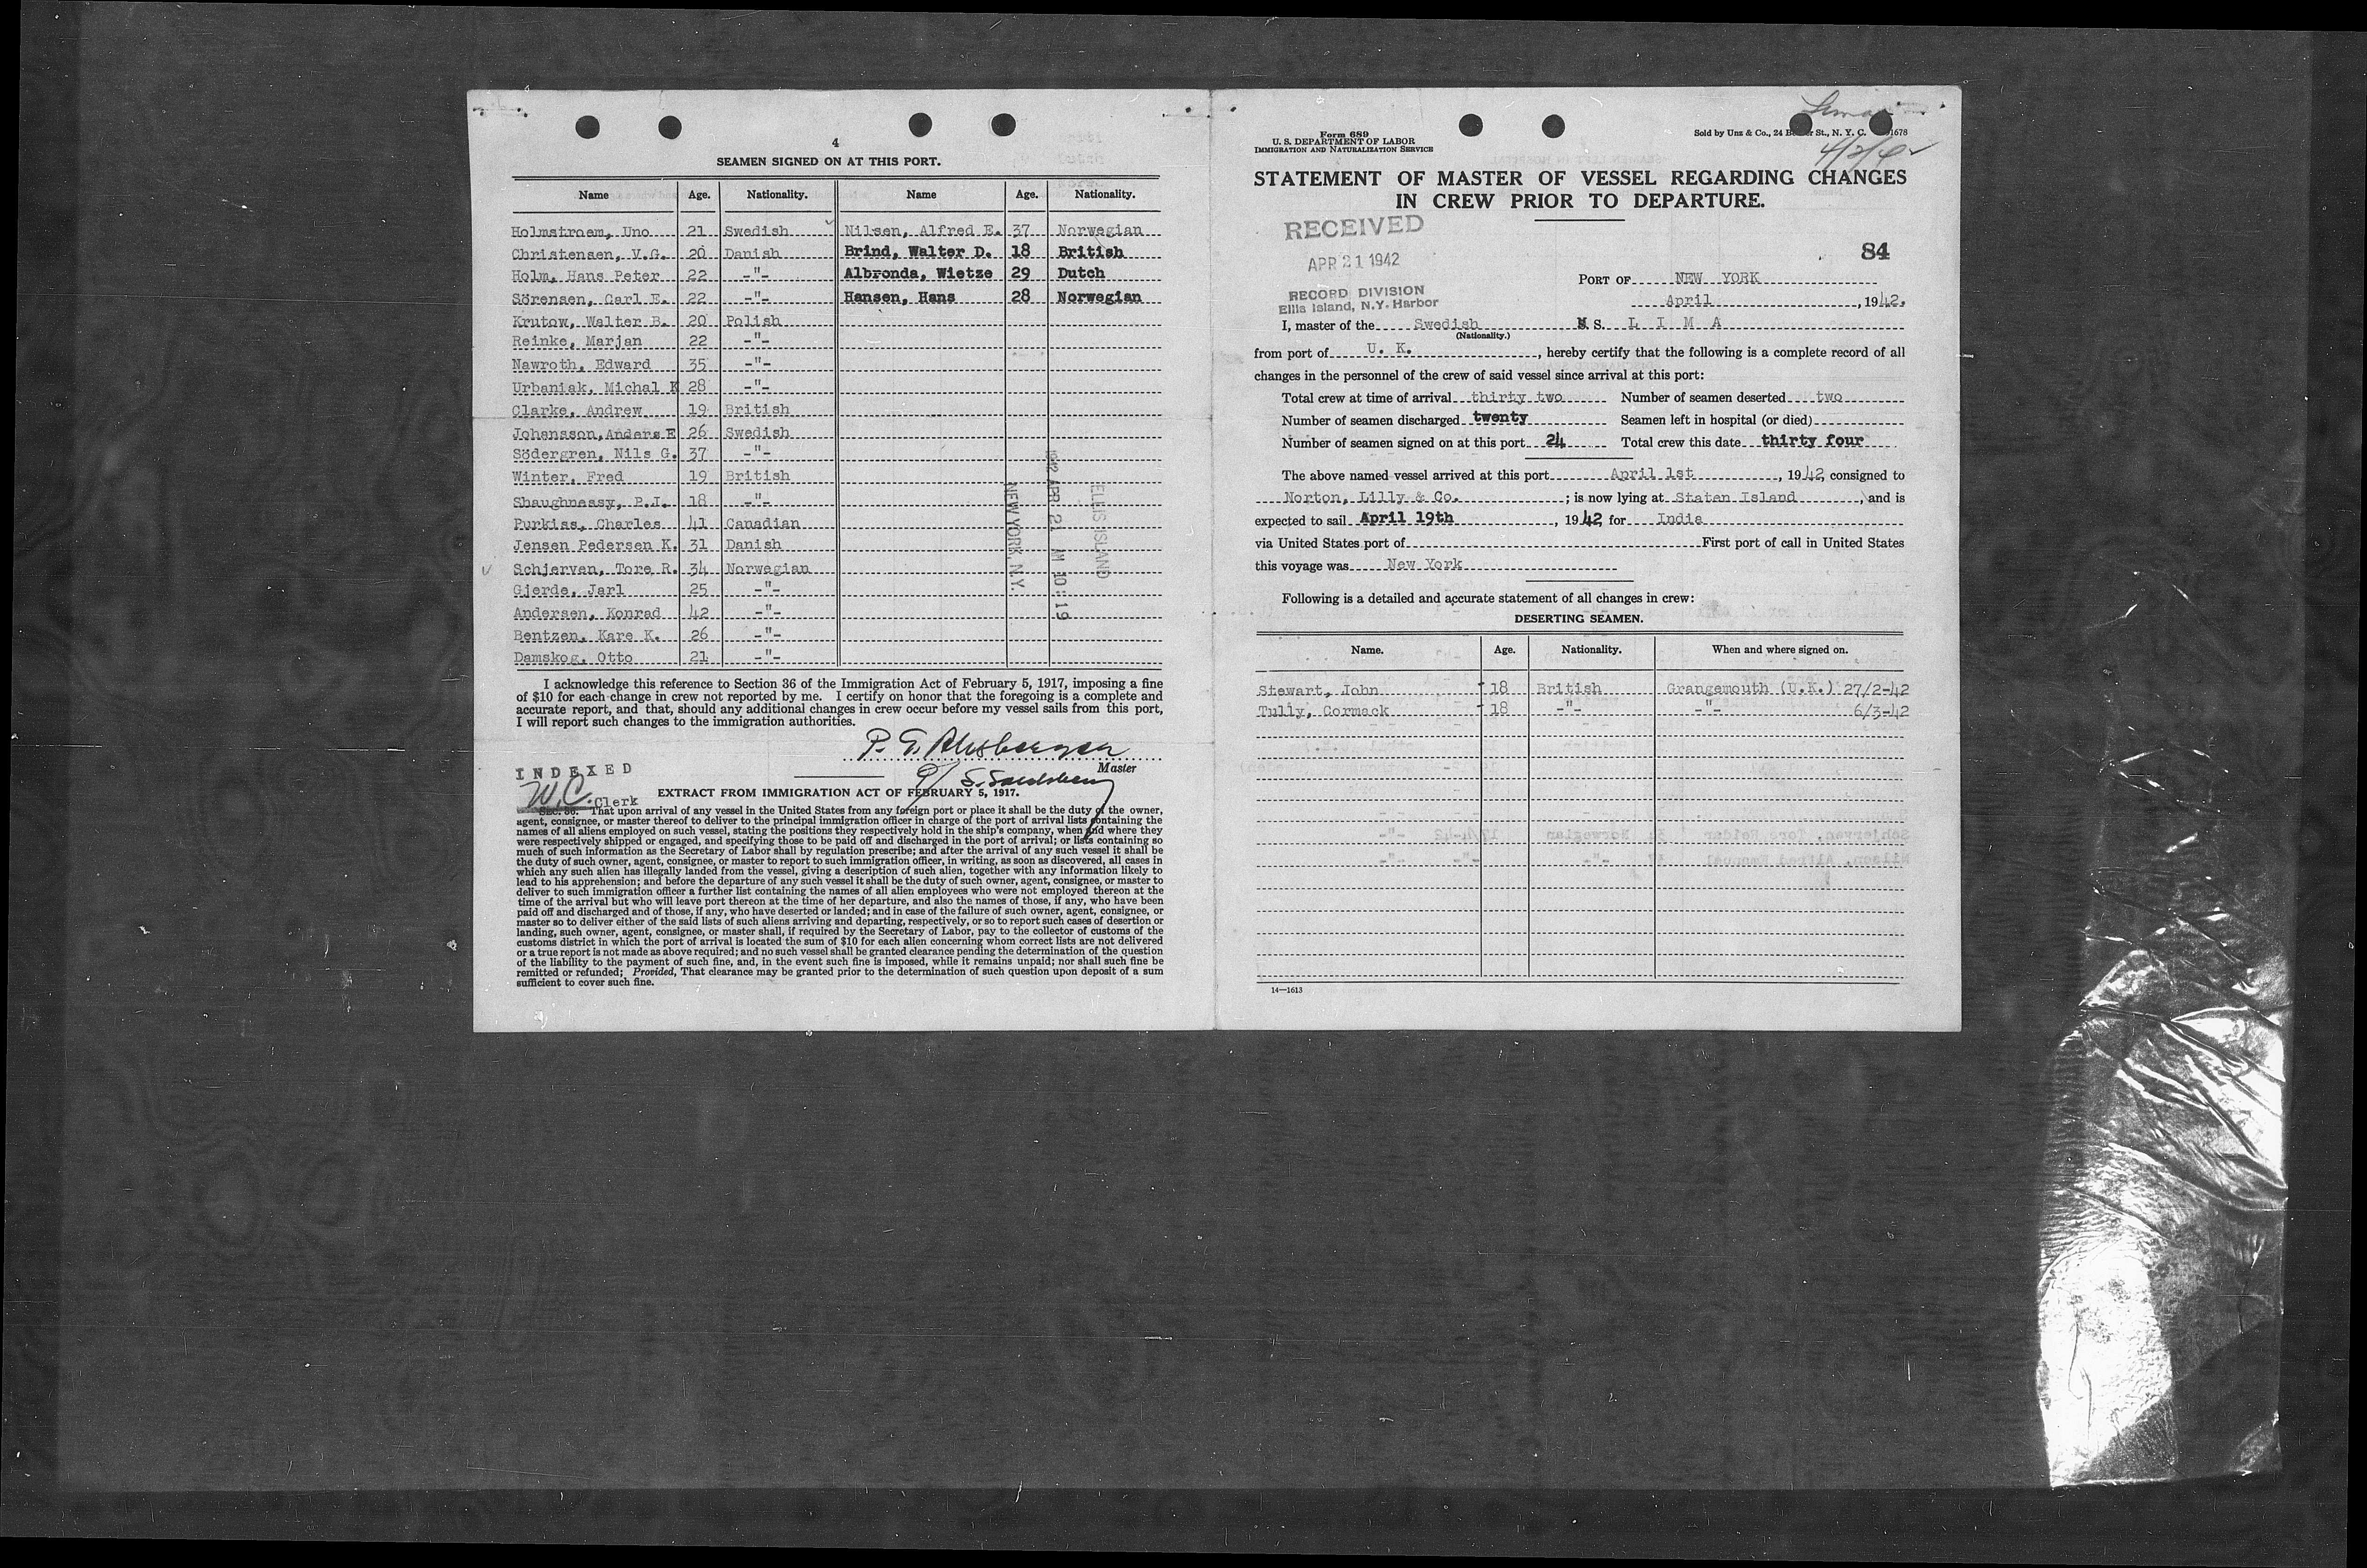 4
SEAMEN SIGNED ON AT THIS PORT.
Name Age. Nationality. Name Age. Nationality.
Holmstroem, Uno 21 Swedish Nilsen, Alfred E. 37 Norwegian
Christensen, V.G. 20 Danish Brind, Walter D. 18 British
Holm, Hans Peter 22 -"- Albronda, Wietze 29 Dutch
Sörensen, Carl E. 22 -"- Hansen, Hans 28 Norwegian
Krutow, Walter B. 20 Polish
Reinke, Marjan 22 -"-
Nawroth, Edward 35 -"-
Urbaniak, Michal K 28 -"-
Clarke, Andrew 19 British
Johansson, Anders E 26 Swedish
Södergren, Nils G. 37 -"-
Winter, Fred 19 British
Shaughnessy, P.J. 18 -"-
Purkiss, Charles 41 Canadian
Jensen Pedersen K. 31 Danish
Schjerven, Tore R. 34 Norwegian
Gjerde, Jarl 25 -"-
Andersen, Konrad 42 -"-
Bentzen, Kare K. 26 -"-
Damskog, Otto 21 -"-
ELLIS ISLAND
1942 APR 21 AM 10:19
NEW YORK, N.Y.
I acknowledge this reference to Section 36 of the Immigration Act of February 5, 1917, imposing a fine
of $10 for each change in crew not reported by me. I certify on honor that the foregoing is a complete and
accurate report, and that, should any additional changes in crew occur before my vessel sails from this port,
I will report such changes to the immigration authorities.
Master
INDEXED
W.C. Clerk
EXTRACT FROM IMMIGRATION ACT OF FEBRUARY 5, 1917.
Sec. 36. That upon arrival of any vessel in the United States from any foreign port or place it shall be the duty of the owner,
agent, consignee, or master thereof to deliver to the principal immigration officer in charge of the port of arrival lists containing the
names of all aliens employed on such vessel, stating the positions they respectively hold in the ship's company, when and where they
were respectively shipped or engaged, and specifying those to be paid off and discharged in the port of arrival; or lists containing so
much of such information as the Secretary of Labor shall by regulation prescribe; and after the arrival of any such vessel it shall be
the duty of such owner, agent, consignee, or master to report to such immigration officer, in writing, as soon as discovered, all cases in
which any such alien has illegally landed from the vessel, giving a description of such alien, together with any information likely to
lead to his apprehension; and before the departure of any such vessel it shall be the duty of such owner, agent, consignee, or master to
deliver to such immigration officer a further list containing the names of all alien employees who were not employed thereon at the
time of the arrival but who will leave port thereon at the time of her departure, and also the names of those, if any, who have been
paid off and discharged and of those, if any, who have deserted or landed; and in case of the failure of such owner, agent, consignee, or
master so to deliver either of the said lists of such aliens arriving and departing, respectively, or so to report such cases of desertion or
landing, such owner, agent, consignee, or master shall, if required by the Secretary of Labor, pay to the collector of customs of the
customs district in which the port of arrival is located the sum of $10 for each alien concerning whom correct lists are not delivered
or a true report is not made as above required; and no such vessel shall be granted clearance pending the determination of the question
of the liability to the payment of such fine, and, in the event such fine is imposed, while it remains unpaid; nor shall such fine be
remitted or refunded; Provided, That clearance may be granted prior to the determination of such question upon deposit of a sum
sufficient to cover such fine.
Form 689
U. S. DEPARTMENT OF LABOR
IMMIGRATION AND NATURALIZATION SERVICE
Sold by Unz & Co., 24 St., N. Y. C. 1678
STATEMENT OF MASTER OF VESSEL REGARDING CHANGES
IN CREW PRIOR TO DEPARTURE.
RECEIVED
APR 21 1942
RECORD DIVISION
Ellis Island, N.Y. Harbor
84
PORT OF NEW YORK
April, 1942.
I, master of the Swedish M S. L I M A
(Nationality.)
from port of U. K., hereby certify that the following is a complete record of all
changes in the personnel of the crew of said vessel since arrival at this port:
Total crew at time of arrival thirty two Number of seamen deserted two
Number of seamen discharged twenty Seamen left in hospital (or died)
Number of seamen signed on at this port 24 Total crew this date thirty four
The above named vessel arrived at this port April 1st, 1942, consigned to
Norton, Lilly & Co.; is now lying at Staten Island, and is
expected to sail April 19th, 1942 for India
via United States port of First port of call in United States
this voyage was New York
Following is a detailed and accurate statement of all changes in crew:
DESERTING SEAMEN.
Name. Age. Nationality. When and where signed on.
Stewart, John 18 British Grangemouth (U.K.) 27/2-42
Tully, Cormack 18 -"- -"- 6/3-42
14—1613